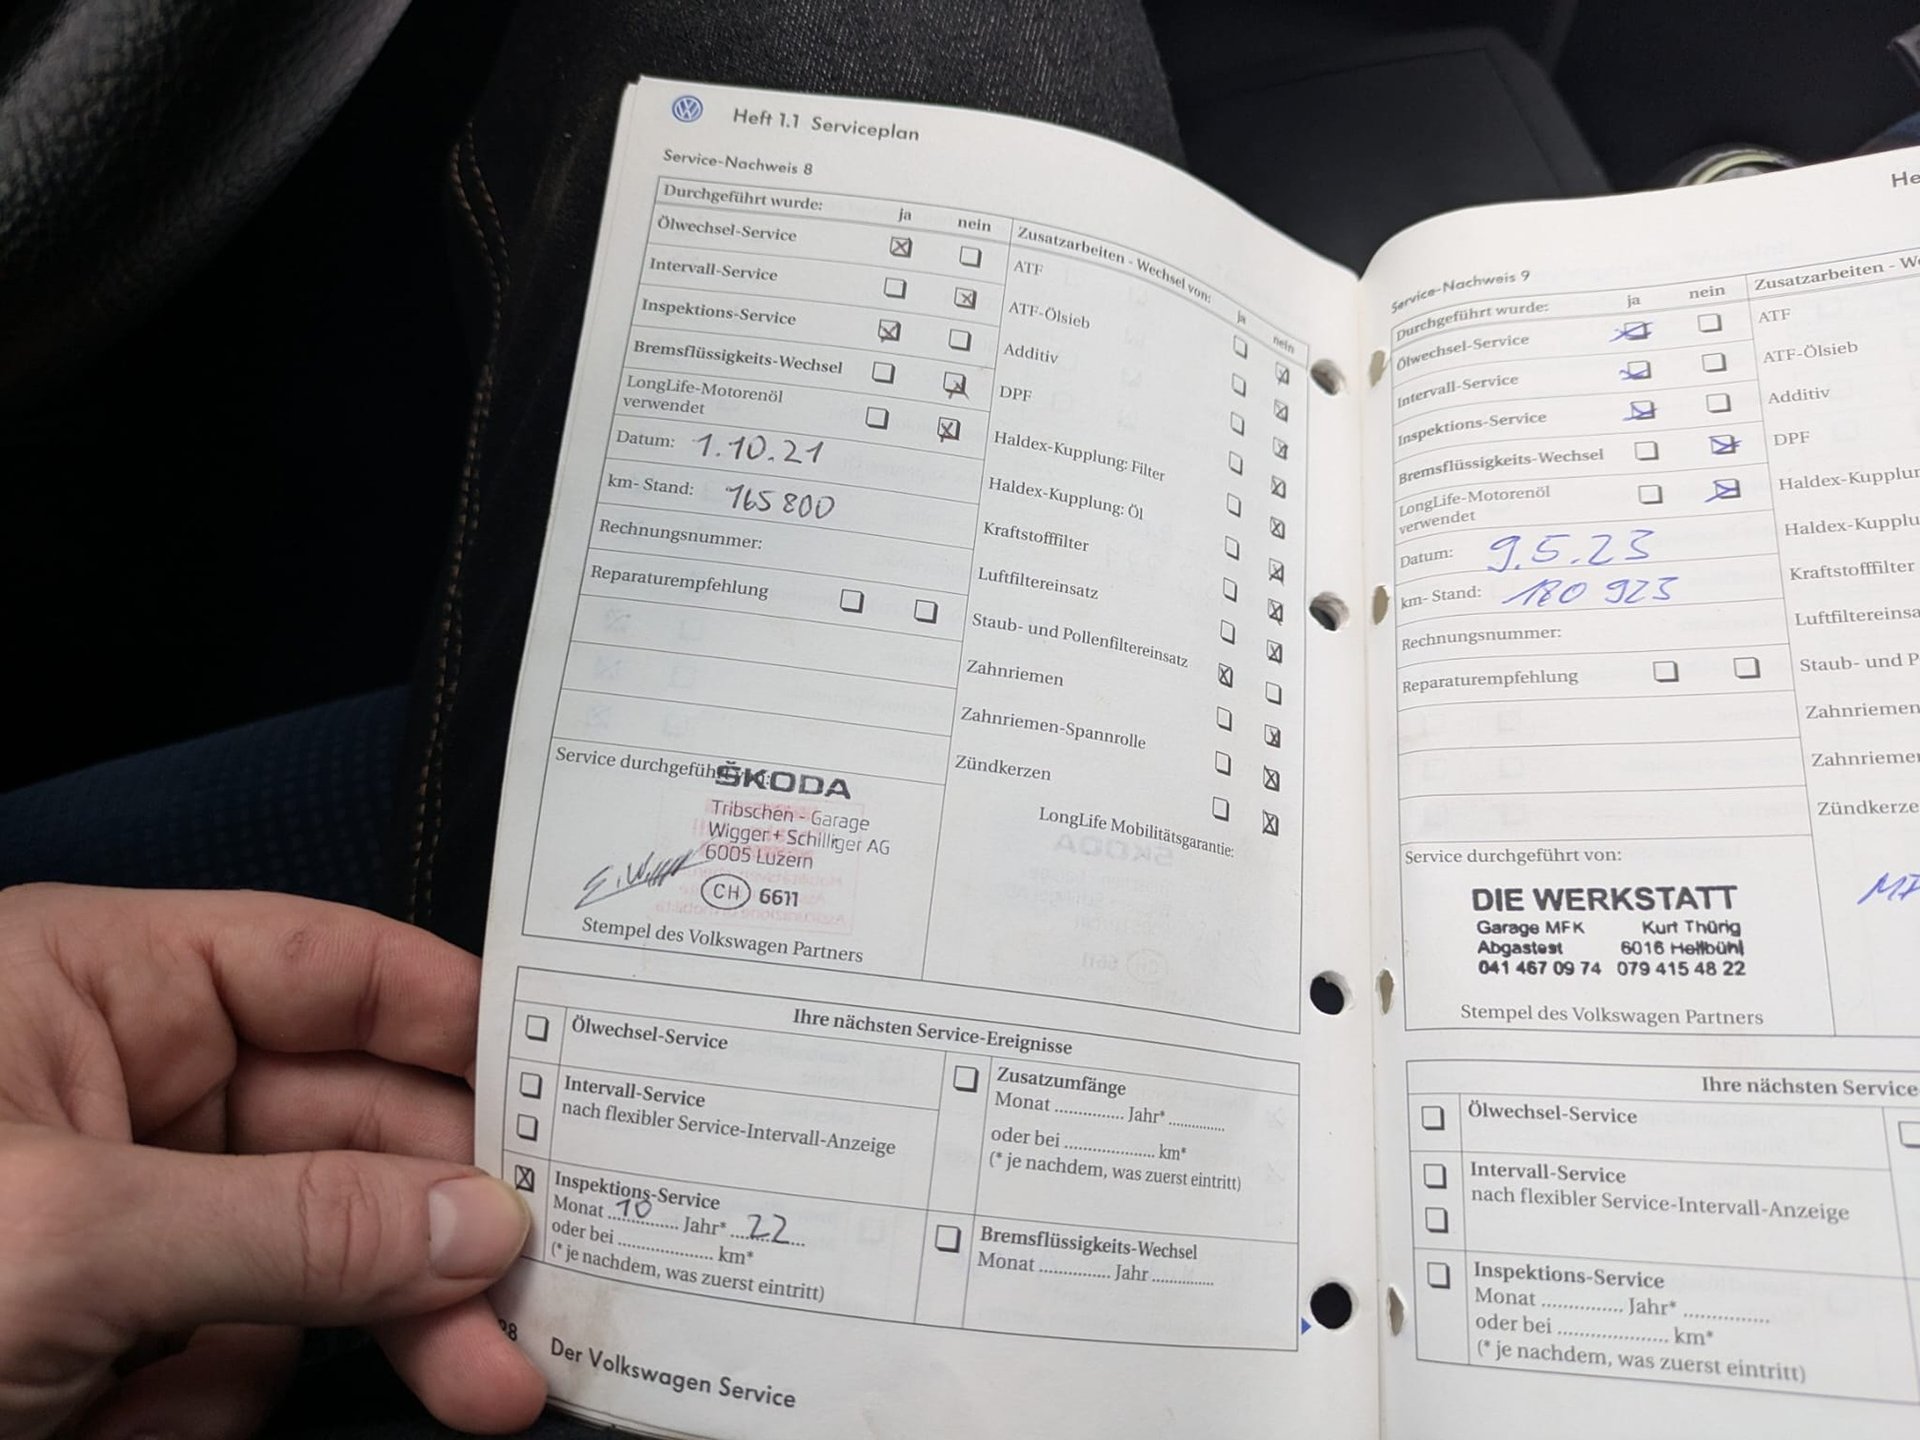 Heft 1.1 Serviceplan
Service-Nachweis 8
Durchgeführt wurde: ja nein
Ölwechsel-Service
Intervall-Service
Inspektions-Service
Bremsflüssigkeits-Wechsel
LongLife-Motorenöl
verwendet
Datum: 1.10.21
km- Stand: 165 800
Rechnungsnummer:
Reparaturempfehlung
Zusatzarbeiten - Wechsel von: ja nein
ATF
ATF-Ölsieb
Additiv
DPF
Haldex-Kupplung: Filter
Haldex-Kupplung: Öl
Kraftstofffilter
Luftfiltereinsatz
Staub- und Pollenfiltereinsatz
Zahnriemen
Zahnriemen-Spannrolle
Zündkerzen
LongLife Mobilitätsgarantie:
Service durchgeführt
ŠKODA
Tribschen - Garage
Wigger + Schilliger AG
6005 Luzern
CH 6611
Stempel des Volkswagen Partners
Ihre nächsten Service-Ereignisse
Ölwechsel-Service
Intervall-Service
nach flexibler Service-Intervall-Anzeige
Inspektions-Service
Monat 10 Jahr* 22
oder bei .................... km*
(* je nachdem, was zuerst eintritt)
Zusatzumfänge
Monat ............... Jahr* ............
oder bei .................... km*
(* je nachdem, was zuerst eintritt)
Bremsflüssigkeits-Wechsel
Monat ............... Jahr .............
Der Volkswagen Service
Service-Nachweis 9
Durchgeführt wurde: ja nein
Ölwechsel-Service
Intervall-Service
Inspektions-Service
Bremsflüssigkeits-Wechsel
LongLife-Motorenöl
verwendet
Datum: 9.5.23
km- Stand: 180 923
Rechnungsnummer:
Reparaturempfehlung
Zusatzarbeiten - We
ATF
ATF-Ölsieb
Additiv
DPF
Haldex-Kupplun
Haldex-Kupplu
Kraftstofffilter
Luftfiltereinsa
Staub- und P
Zahnriemen
Zahnrieme
Zündkerze
Service durchgeführt von:
DIE WERKSTATT
Garage MFK Kurt Thürig
Abgastest 6016 Hellbühl
041 467 09 74 079 415 48 22
Stempel des Volkswagen Partners
Ihre nächsten Service
Ölwechsel-Service
Intervall-Service
nach flexibler Service-Intervall-Anzeige
Inspektions-Service
Monat ............... Jahr* ................
oder bei .................... km*
(* je nachdem, was zuerst eintritt)